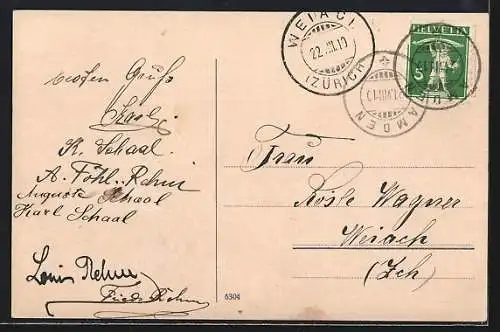 WEIACH
22.III.10
(ZÜRICH)
HELVETIA
5
AMDEN
Gruß
Karl
K. Schaal
A. Föhl-Rehm
Auguste Schaal
Karl Schaal
Louis Rehm
Frieda Rehm
Frau
Rösle Wagner
Weiach
(Zch)
6304